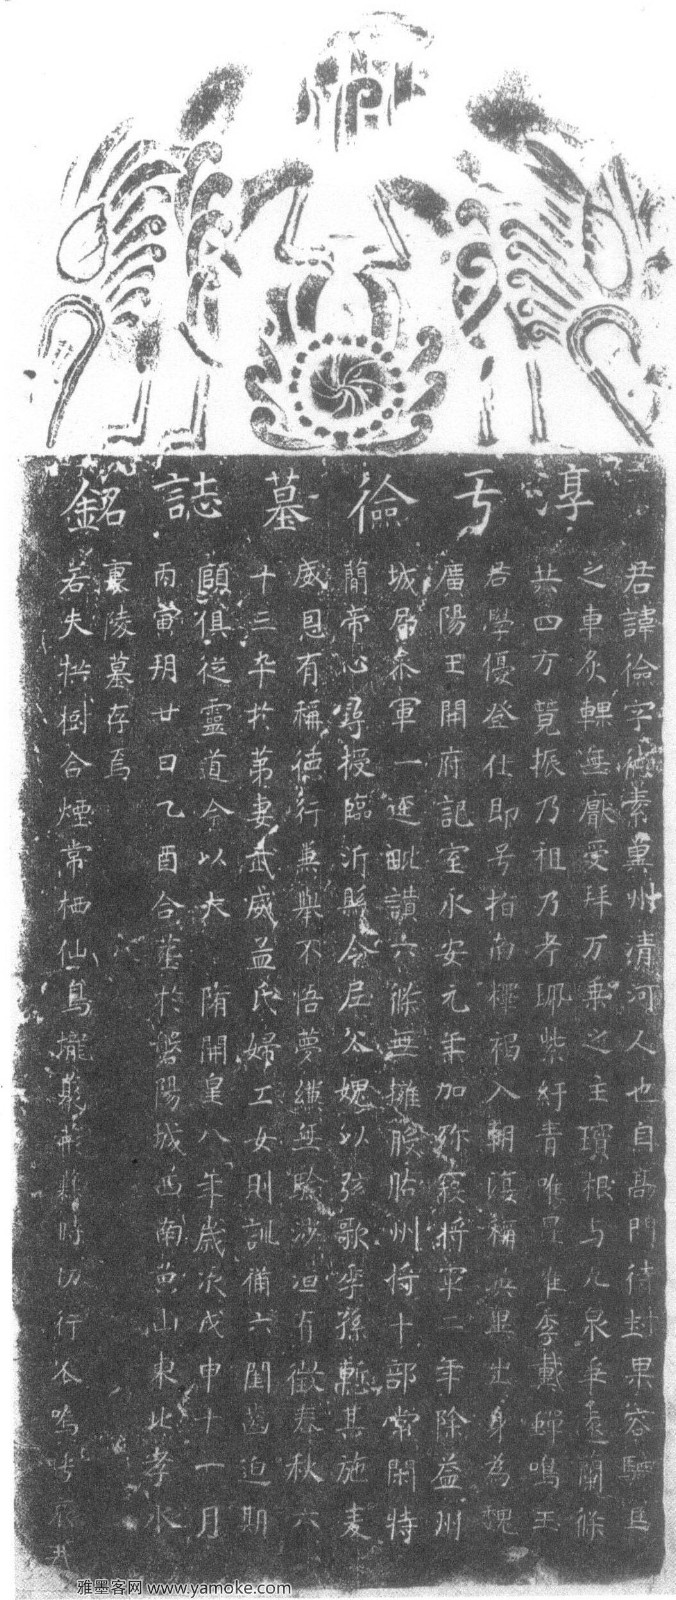 淳于儉墓誌銘
君諱儉字德素冀州清河人也自高門待封果容駟馬
之車炙輠無廠受拜万乘之主瓊根与九泉爭遠蘭條
共四方競振乃祖乃考珮紫紆青唯昆唯季戴蟬鳴玉
君學優登仕即号指南釋褐入朝復稱英出身為魏
廣陽王開府記室永安元年加殄寇將軍二年除益州
城局參軍一遷毗讚六條無擁脮胳州倚十部常閑特
簡帝心尋授臨沂縣令尼父媿以弦歌季孫慙其施麦
威恩有稱德行兼舉不悟夢縯無驗涉洹有徵春秋六
十三卒於第妻武威孟氏婦工女則訓備六閨齒迫期
頤俱從靈道今以大隋開皇八年歲次戊申十一月
丙寅朔廿日乙酉合葬於磐陽城西南黃山東北孝水
里陵墓存焉
若夫拱樹合煙常栖仙鳥壠聚時切行人嗚呼哀哉
雅墨客网 www.yamoke.com